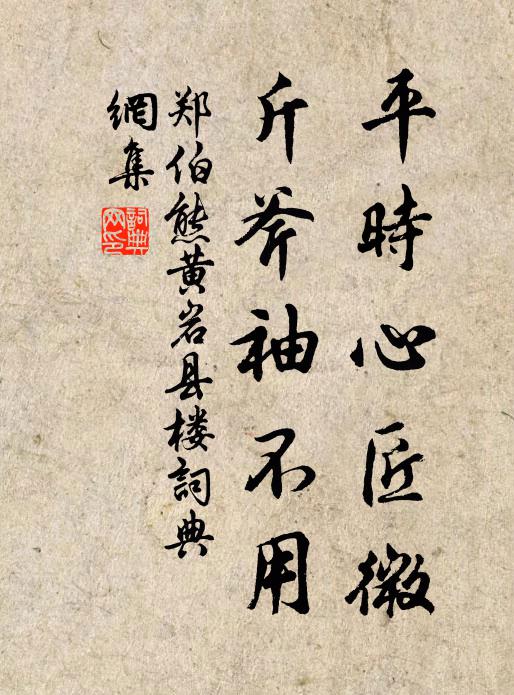 平時心匠微
斤斧袖不用
郑伯熊黄岩县楼詞典
網集
詞典
网印